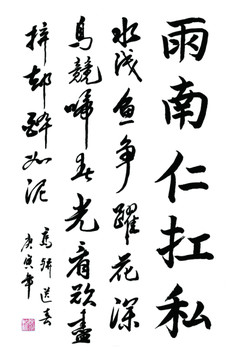 雨南仁扛私
水浅鱼争躍花深
鸟競啼春光看欲盡
却醉如泥
高骈送春
庚寅年